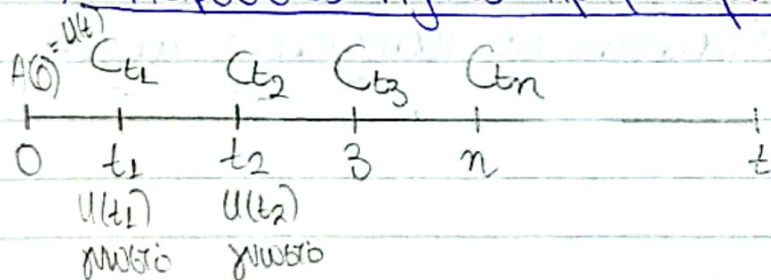 A(0)=U(t) Ct1 Ct2 Ct3 Ctn
0 t1 t2 3 n t
U(t1) U(t2)
γνωστό γνωστό